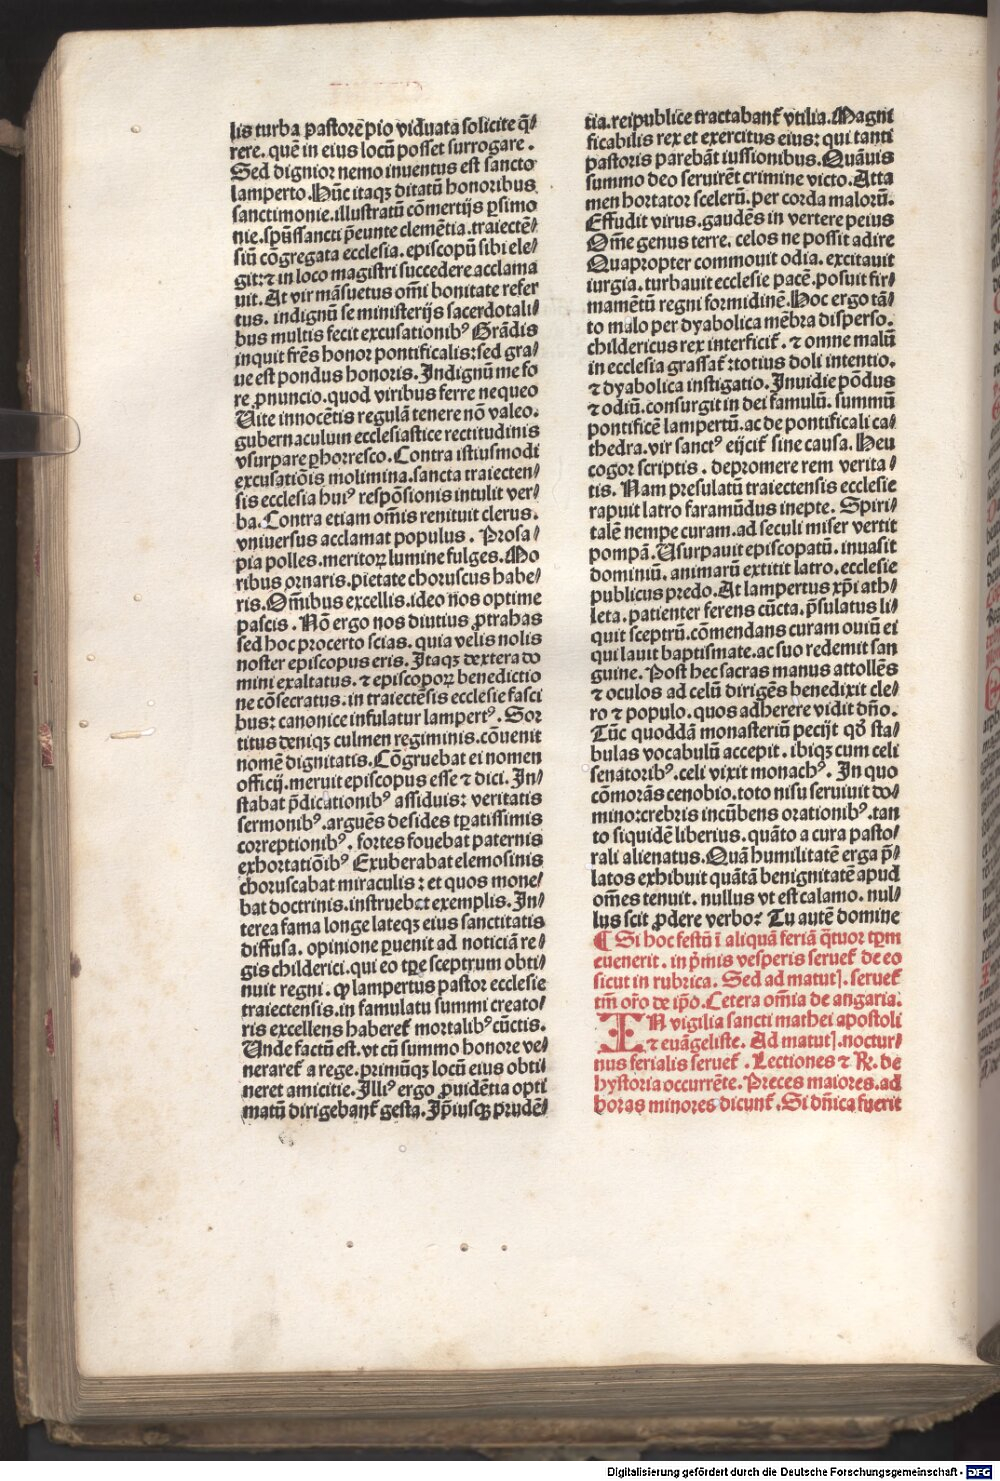 lis turba pastorē pio viduata solicite q̄/
rere. quē in eius locū posset surrogare.
Sed dignior nemo inuentus est sancto
lamperto. Hūc itaqꝫ ditatū honoribus
sanctimonie. illustratū cōmertijs ꝑsimo
nie. spūssancti p̄eunte clemētia. traiectē/
siū cōgregata ecclesia. episcopū sibi ele/
git: ⁊ in loco magistri succedere acclama
uit. At vir māsuetus om̄i bonitate refer
tus. indignū se ministerijs sacerdotali/
bus multis fecit excusationibꝰ Grādis
inquit fr̄es honor pontificalis: sed gra/
ue est pondus honoris. Indignū me fo
re ꝓnuncio. quod viribus ferre nequeo
Vite innocētis regulā tenere nō valeo.
gubernaculum ecclesiastice rectitudinis
vsurpare ꝑhorresco. Contra istiusmodi
excusatiōis molimina. sancta traiecten/
sis ecclesia huiꝰ respōsionis intulit ver/
ba. Contra etiam om̄is renituit clerus.
vniuersus acclamat populus. Prosa/
pia polles. meritoꝝ lumine fulges. Mo
ribus ornaris. pietate choruscus habe/
ris. Om̄ibus excellis. ideo nos optime
pascis. Nō ergo nos diutius ꝓtrahas
sed hoc procerto scias. quia velis nolis
noster episcopus eris. Itaqꝫ dextera do
mini exaltatus. ⁊ episcoporꝝ benedictio
ne cōsecratus. in traiectēsis ecclesie fasci
bus: canonice infulatur lampertꝰ. Sor
titus deniqꝫ culmen regiminis. cōuenit
nomē dignitatis. Cōgruebat ei nomen
officij. meruit episcopus esse ⁊ dici. In/
stabat p̄dicationibꝰ assiduis: veritatis
sermonibꝰ. arguēs desides tꝑatissimis
correptionibꝰ. fortes fouebat paternis
exhortatiōibꝰ Exuberabat elemosinis
choruscabat miraculis: et quos mone/
bat doctrinis. instruebat exemplis. In/
terea fama longe lateqꝫ eius sanctitatis
diffusa. opinione ꝑuenit ad noticiā re/
gis childerici. qui eo tꝑe sceptrum obti/
nuit regni. ꝙ lampertus pastor ecclesie
traiectensis. in famulatu summi creato/
ris excellens haberet᷑ mortalibꝰ cūctis.
Unde factū est. vt cū summo honore ve/
neraret᷑ a rege. primūqꝫ locū eius obti/
neret amicitie. Illiꝰ ergo ꝓuidētia opti
matū dirigebant᷑ gesta. Ip̄iusqꝫ prudē/
tia. reipublice tractabant᷑ vtilia. Magni
ficabilis rex et exercitus eius: qui tanti
pastoris parebāt iussionibus. Quāuis
summo deo seruirēt crimine victo. Atta
men hortator scelerū. per corda malorū.
Effudit virus. gaudēs in vertere peius
Om̄e genus terre. celos ne possit adire
Quapropter commouit odia. excitauit
iurgia. turbauit ecclesie pacē. posuit fir/
mamētū regni formidinē. Hoc ergo tā/
to malo per dyabolica mēbra disperso.
childericus rex interficit᷑. ⁊ omne malū
in ecclesia grassat᷑: totius doli intentio.
⁊ dyabolica instigatio. Inuidie pōdus
⁊ odiū. consurgit in dei famulū. summū
pontificē lampertū. ac de pontificali ca/
thedra. vir sanctꝰ eijcit᷑ sine causa. Heu
cogor scriptis. depromere rem verita/
tis. Nam presulatū traiectensis ecclesie
rapuit latro faramūdus inepte. Spiri/
talē nempe curam. ad seculi miser vertit
pompā. Usurpauit episcopatū. inuasit
dominiū. animarū extitit latro. ecclesie
publicus predo. At lampertus xp̄i ath/
leta. patienter ferens cūcta. p̄sulatus li/
quit sceptrū. cōmendans curam ouiū ei
qui lauit baptismate. ac suo redemit san
guine. Post hec sacras manus attollēs
⁊ oculos ad celū dirigēs benedixit cle/
ro ⁊ populo. quos adherere vidit dn̄o.
Tūc quoddā monasteriū pecijt qd̄ sta/
bulas vocabulū accepit. ibiqꝫ cum celi
senatoribꝰ. celi vixit monachꝰ. In quo
cōmorās cenobio. toto nisu seruiuit do/
mino: crebris incūbens orationibꝰ. tan
to siquidē liberius. quāto a cura pasto/
rali alienatus. Quā humilitatē erga p̄/
latos exhibuit quātā benignitatē apud
om̄es tenuit. nullus vt est calamo. nul/
lus scit ꝓdere verbo: Tu autē domine
¶ Si hoc festū ī aliquā feriā q̄tuor tꝑm
euenerit. in p̄mis vesperis seruet᷑ de eo
sicut in rubrica. Sed ad matut̄. seruet᷑
tm̄ or̄o de ip̄o. Cetera om̄ia de angaria.
IN vigilia sancti mathei apostoli
⁊ euāgeliste. Ad matut̄. noctur/
nus ferialis seruet᷑. Lectiones ⁊ ℞. de
hystoria occurrēte. Preces maiores. ad
horas minores dicunt᷑. Si dn̄ica fuerit
Digitalisierung gefördert durch die Deutsche Forschungsgemeinschaft - DFG